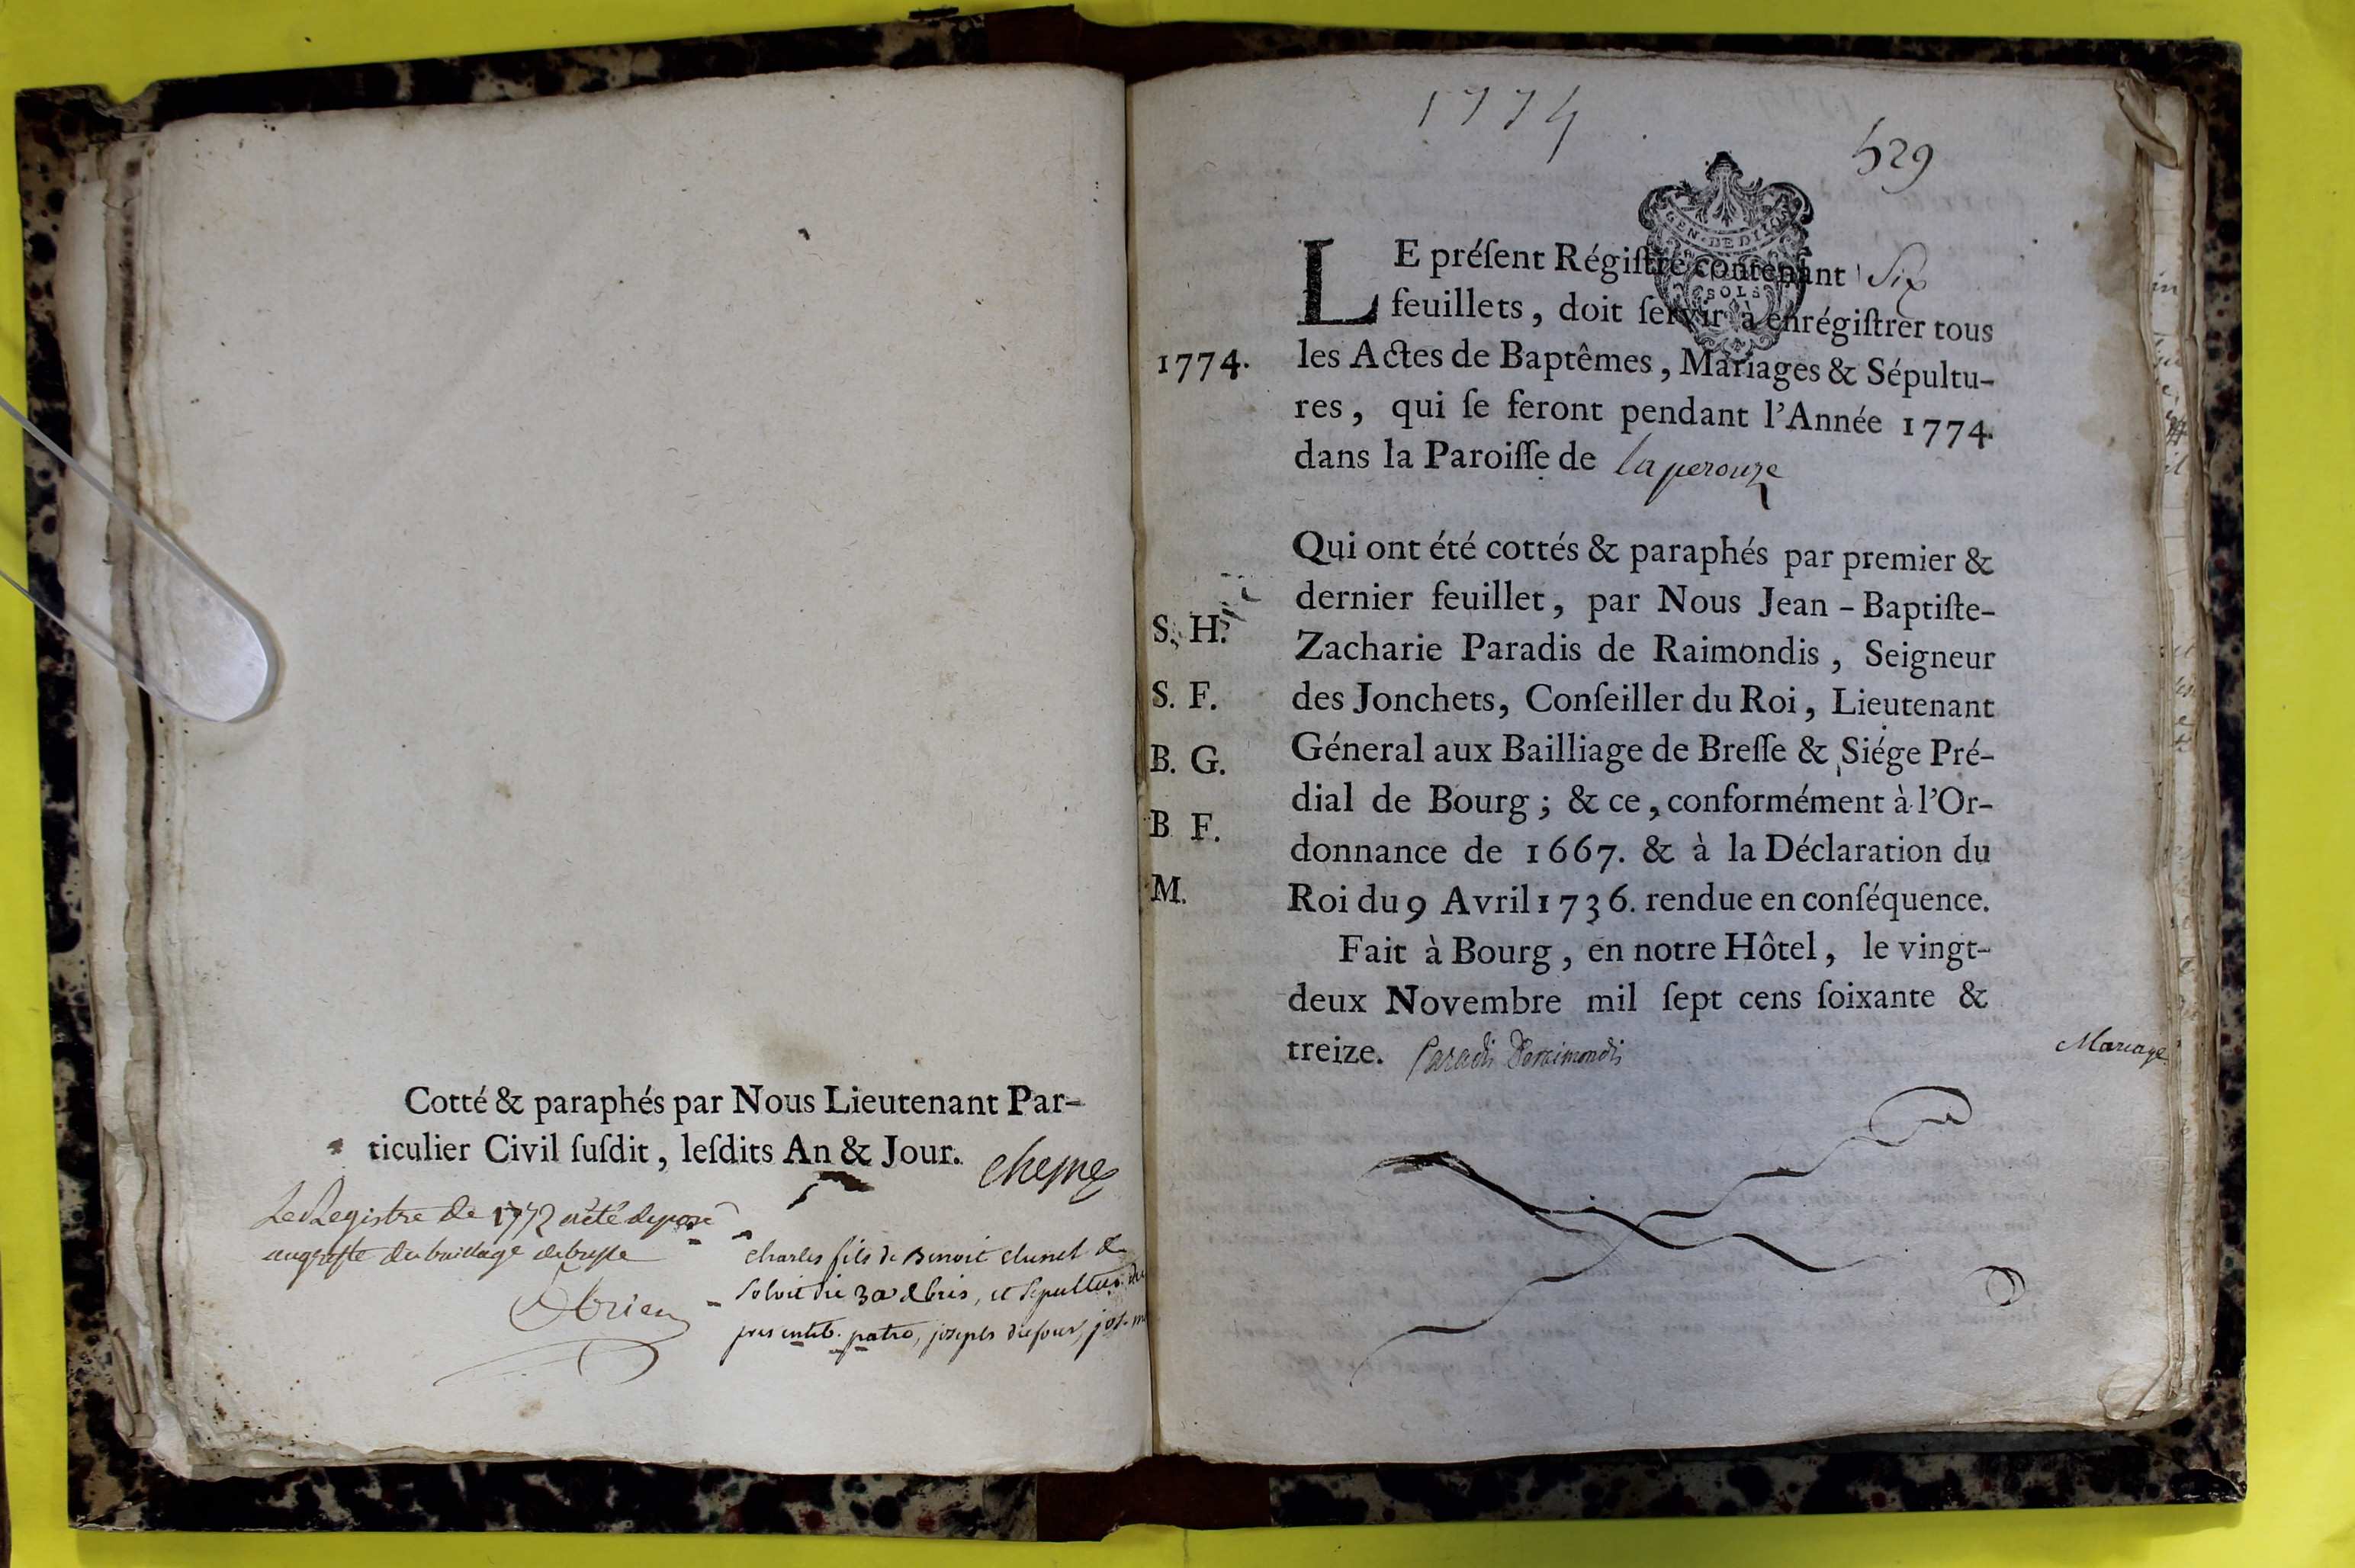 Cotté & paraphés par Nous Lieutenant Par-
ticulier Civil ſuſdit, leſdits An & Jour.
Le Registre de 1772 a été deposé
au greffe du bailliage de bresse
charles fils de Benoit
et
joseph dufour
1774
529
GEN. DE DIJON
SOLS
LE préſent Régiſtre contenant Six
feuillets, doit ſervir à enrégiſtrer tous
1774.
les Actes de Baptêmes, Mariages & Sépultu-
res, qui ſe feront pendant l'Année 1774.
dans la Paroiſſe de laperouze
Qui ont été cottés & paraphés par premier &
dernier feuillet, par Nous Jean-Baptiſte-
S. H.
Zacharie Paradis de Raimondis, Seigneur
S. F.
des Jonchets, Conſeiller du Roi, Lieutenant
B. G.
Géneral aux Bailliage de Breſſe & Siége Pré-
dial de Bourg; & ce, conformément à l'Or-
B F.
donnance de 1667. & à la Déclaration du
M.
Roi du 9 Avril 1736. rendue en conſéquence.
Fait à Bourg, en notre Hôtel, le vingt-
deux Novembre mil ſept cens ſoixante &
treize. Paradis Deraimondis
Mariage